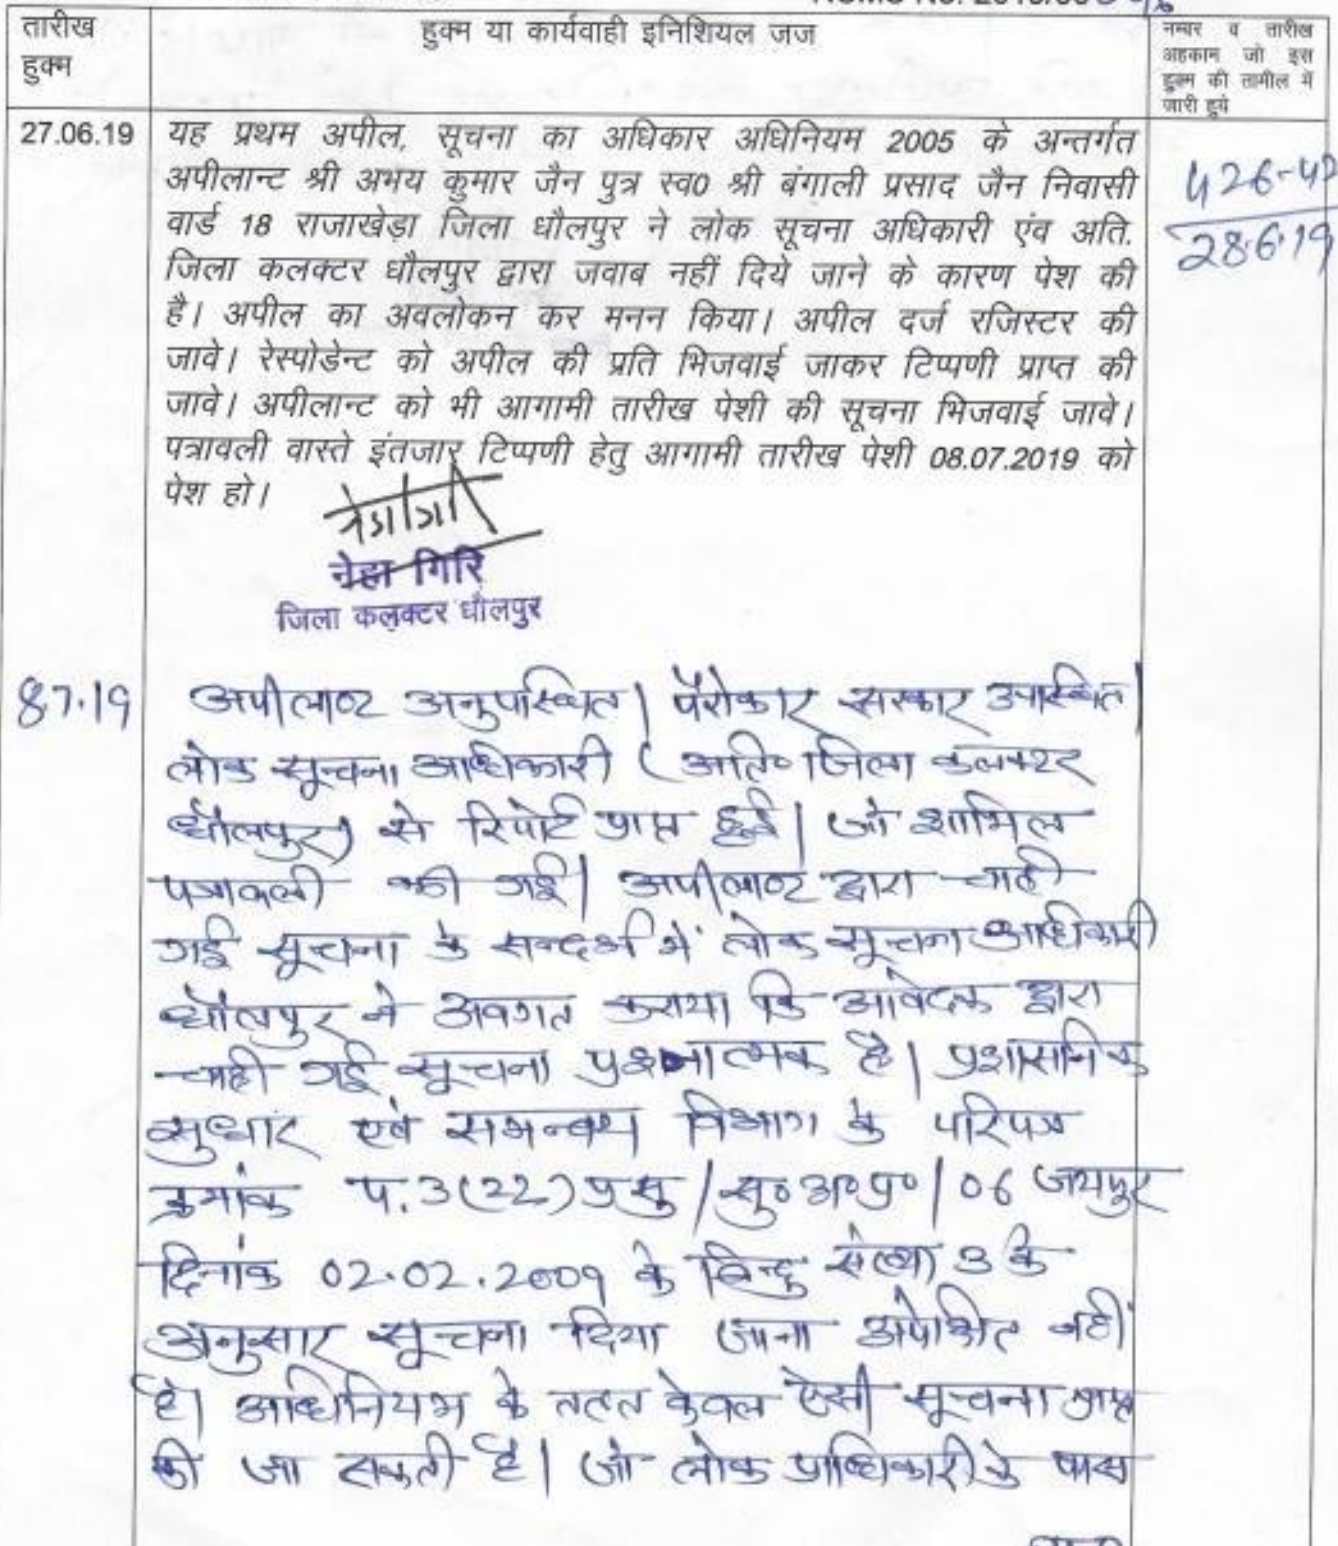 तारीख
हुक्म
हुक्म या कार्यवाही इनिशियल जज
नम्बर व तारीख
अहकाम जो इस
हुक्म की तामील में
जारी हुये
27.06.19
यह प्रथम अपील, सूचना का अधिकार अधिनियम 2005 के अन्तर्गत
अपीलान्ट श्री अभय कुमार जैन पुत्र स्व0 श्री बंगाली प्रसाद जैन निवासी
वार्ड 18 राजाखेड़ा जिला धौलपुर ने लोक सूचना अधिकारी एंव अति.
जिला कलक्टर धौलपुर द्वारा जवाब नहीं दिये जाने के कारण पेश की
है। अपील का अवलोकन कर मनन किया। अपील दर्ज रजिस्टर की
जावे। रेस्पोडेन्ट को अपील की प्रति भिजवाई जाकर टिप्पणी प्राप्त की
जावे। अपीलान्ट को भी आगामी तारीख पेशी की सूचना भिजवाई जावे।
पत्रावली वास्ते इंतजार टिप्पणी हेतु आगामी तारीख पेशी 08.07.2019 को
पेश हो।
426-42
28.6.19
नेहा गिरि
जिला कलक्टर धौलपुर
8.7.19
अपीलान्ट अनुपस्थित। पैरोकार सरकार उपस्थित।
लोक सूचना अधिकारी (अति० जिला कलक्टर
धौलपुर) से रिपोर्ट प्राप्त हुई। जो शामिल
पत्रावली की गई। अपीलान्ट द्वारा चाही
गई सूचना के सन्दर्भ में लोक सूचना अधिकारी
धौलपुर ने अवगत कराया कि आवेदक द्वारा
चाही गई सूचना प्रश्नात्मक है। प्रशासनिक
सुधार एवं समन्वय विभाग के परिपत्र
क्रमांक प.3(22)प्रसु/सु०अ०प्र०/06 जयपुर
दिनांक 02.02.2009 के बिन्दु संख्या 3 के
अनुसार सूचना दिया जाना अपेक्षित नहीं
है। अधिनियम के तहत केवल ऐसी सूचना प्राप्त
की जा सकती है। जो लोक प्राधिकारी के पास